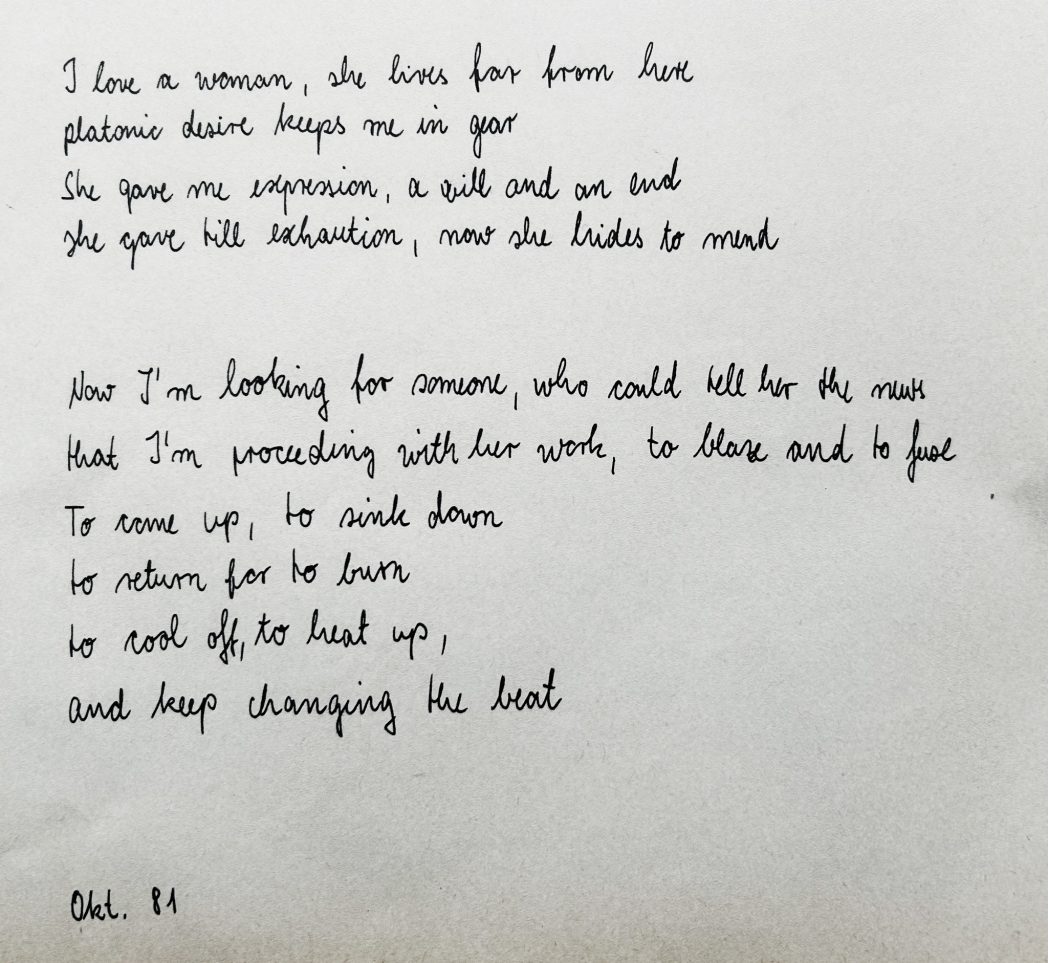 I love a woman, she lives far from here
platonic desire keeps me in gear
She gave me expression, a will and an end
she gave till exhaution, now she hides to mend
Now I'm looking for someone, who could tell her the news
that I'm proceeding with her work, to blaze and to fuse
To come up, to sink down
to return for to burn
to cool off, to heat up,
and keep changing the beat
Okt. 81